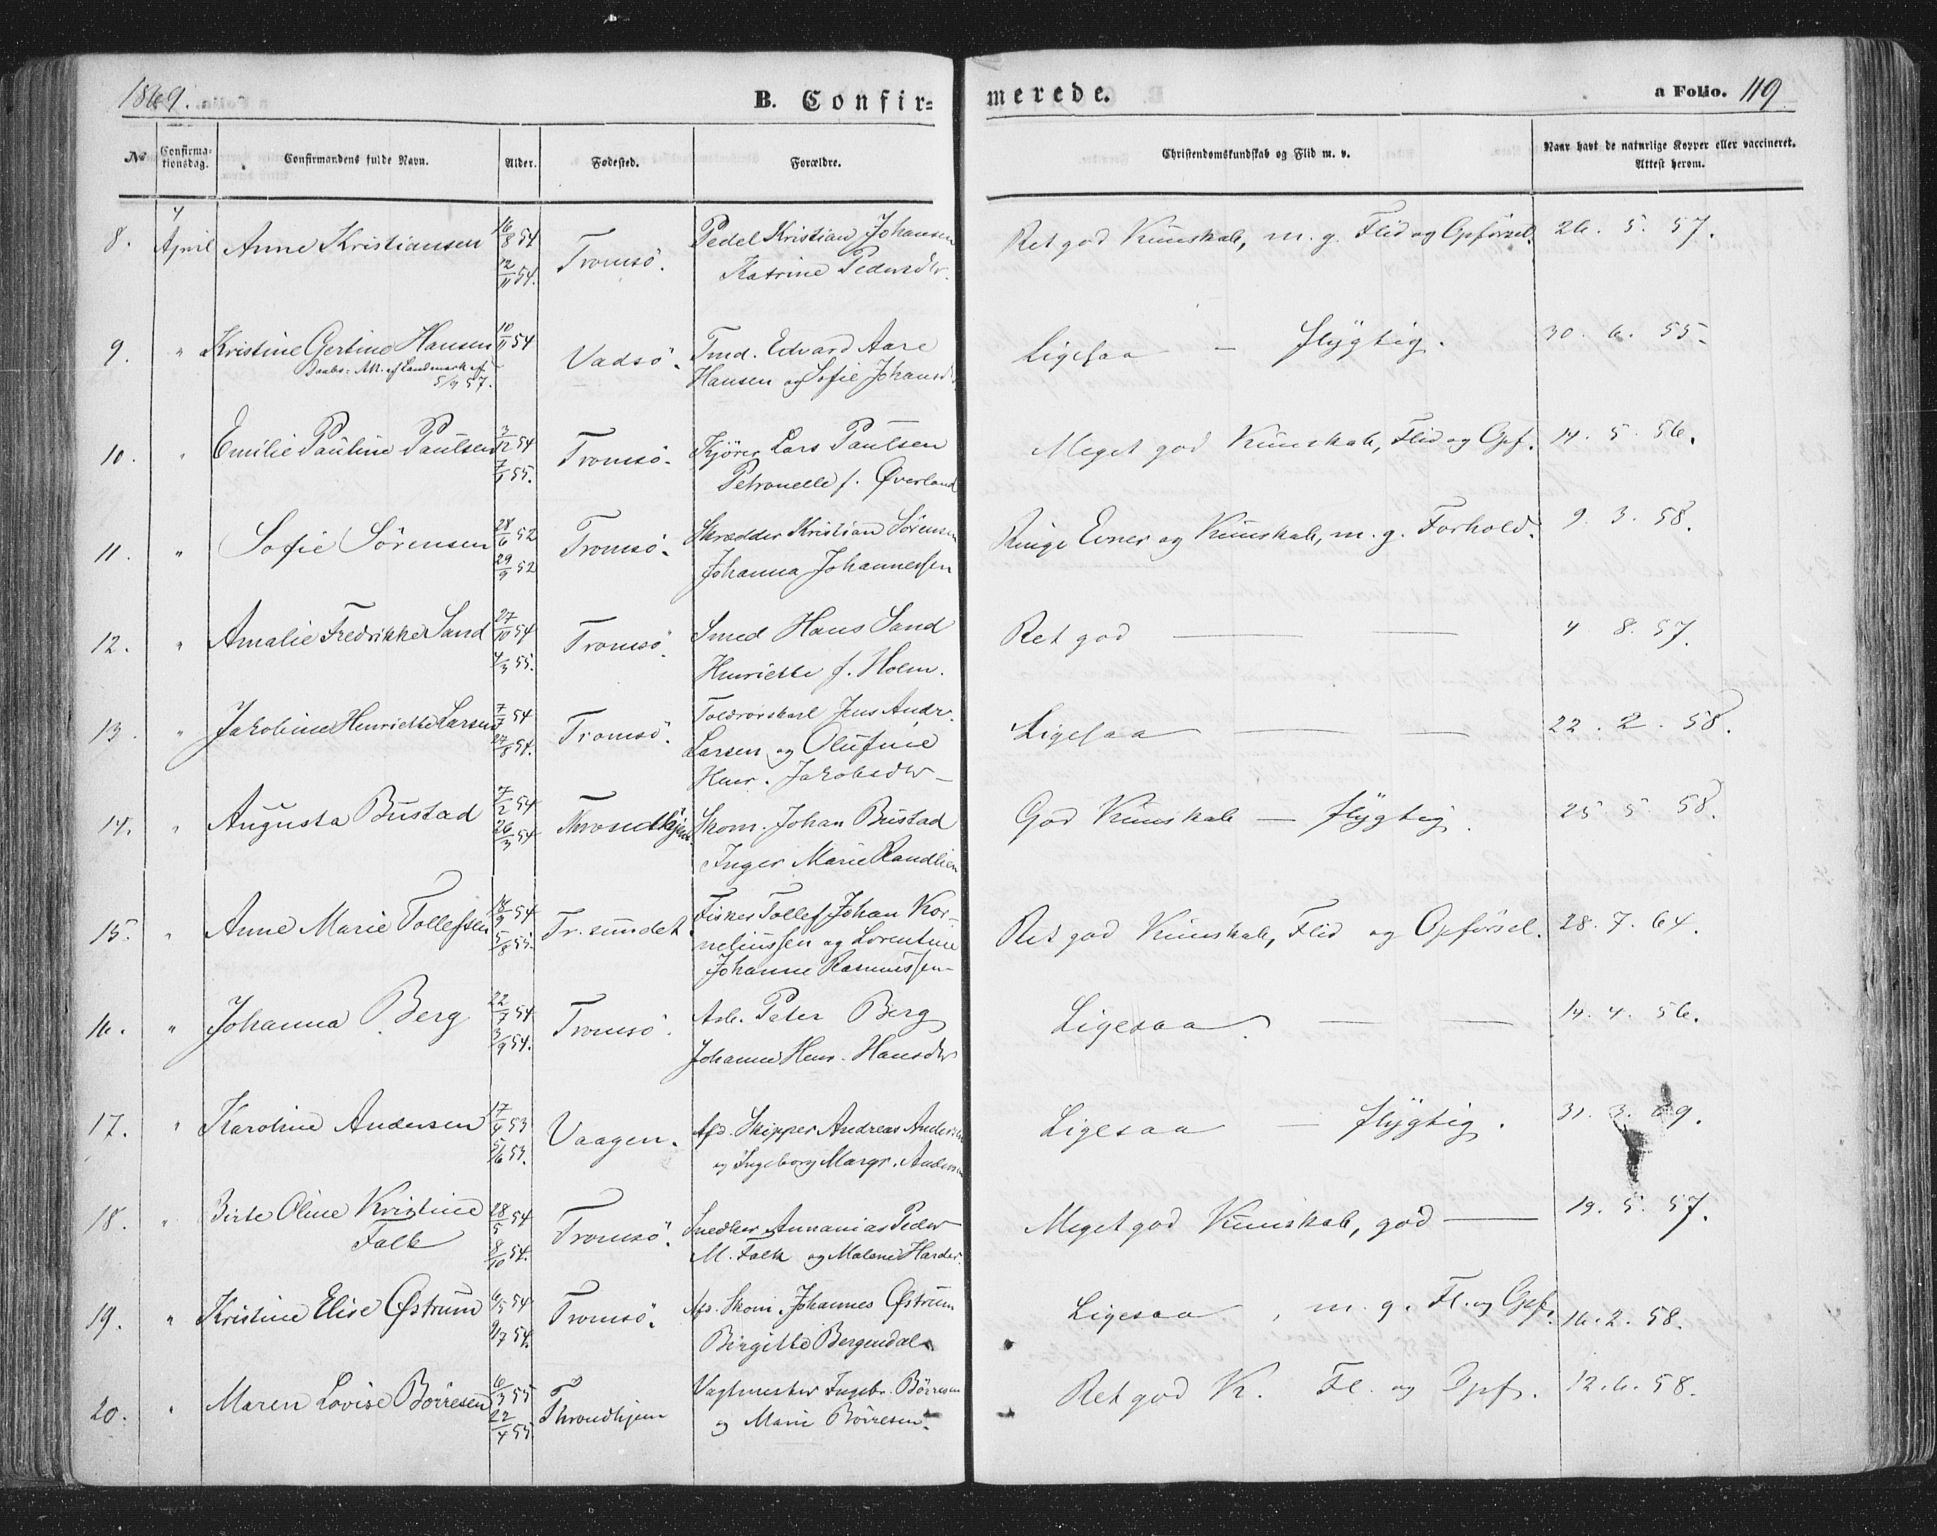 1869.
B. Confir-
merede.
a Folio. 119
No
Confirma-
tionsdag.
Confirmandens fulde Navn.
Alder.
Fødested.
Forældre.
Christendomskundskab og Flid m. v.
Naar havt de naturlige Kopper eller vaccineret.
Attest herom.
8. 4 April Anne Kristiansen 16/8 54 12/11 54. Tromsö. Pedel Kristian Johansen
Katrine Pedersdtr. Ret god Kunskab, m. g. Flid og Opförsel. 26. 5. 57.
9. " Kristine Gertine Hansen 10/11 54 Vadsö. Tmd. Edvard Aare
Hansen og Sofie Johansd Ligesaa — flygtig. 30. 6. 55.
Daabs: Att. af Landmark af
5/9 57.
10. " Emilie Pauline Paulsen 3/12 54 7/1 55. Tromsö. Kjører Lars Paulsen
Petronelle f. Øverland Meget god Kunskab, Flid og Opf. 14. 5. 56.
11. " Sofie Sörensen 28/6 52 29/9 52 Tromsö. Skrædder Kristian Sörensen
Johanna Johannessen Ringe Evner og Kunskab, m. g. Forhold. 9. 3. 58.
12. " Amalie Fredrikke Sand 27/10 54 4/3 55. Tromsö. Smed Hans Sand
Henriette f. Holm. Ret god — — 4 8. 57.
13. " Jakobine Henriette Larsen 7/7 54 27/8 54. Tromsö. Toldrorskarl Jens Andr.
Larsen og Olufine
Henr. Jakobsdtr — Ligesaa — — — 22. 2. 58.
14. " Augusta Bustad 7/2 54 26/3 54 Throndhjem Skom. Johan Bustad
Inger Marie Randlien God Kunskab — flygtig. 25 5. 58.
15. " Anne Marie Tollefsen 18/9 54 5/8 55. Tr. sundet. Fisker Tollef Johan Kor-
neliussen og Lorentine
Johanne Rasmussen — Ret god Kunskab, Flid og Opförsel. 28. 7. 64.
16. " Johanna Berg 22/7 54 3/9 54. Tromsö. Arb. Peter Berg
Johanne Henr. Hansdtr Ligesaa. — — 14. 4. 56.
17. " Karoline Andersen 17/4 53 5/6 53. Vaagen. Afd. Skipper Andreas Andersen
og Ingeborg Margr. Andersen Ligesaa — flygtig. 31. 3. 69.
18. " Birte Oline Kristine
Falk 28/5 54 8/10 54. Tromsö. Snedker Annanias Peder
M. Falk og Malene Harder. Meget god Kunskab, god — 19. 5. 57.
19. " Kristine Elise Østrum 6/5 54 9/7 54. Tromsö. Afd. Skom. Johannes Østrum
Birgitte Bergendal. Ligesaa, m. g. Fl. og Opf. 16. 2. 58.
20. " Maren Lovise Börresen 6/3 55 22/4 55 Throndhjem Vagtmester Ingebr. Börresen
og Marie Börresen. Ret god K. Fl. og Opf. 12. 6. 58.